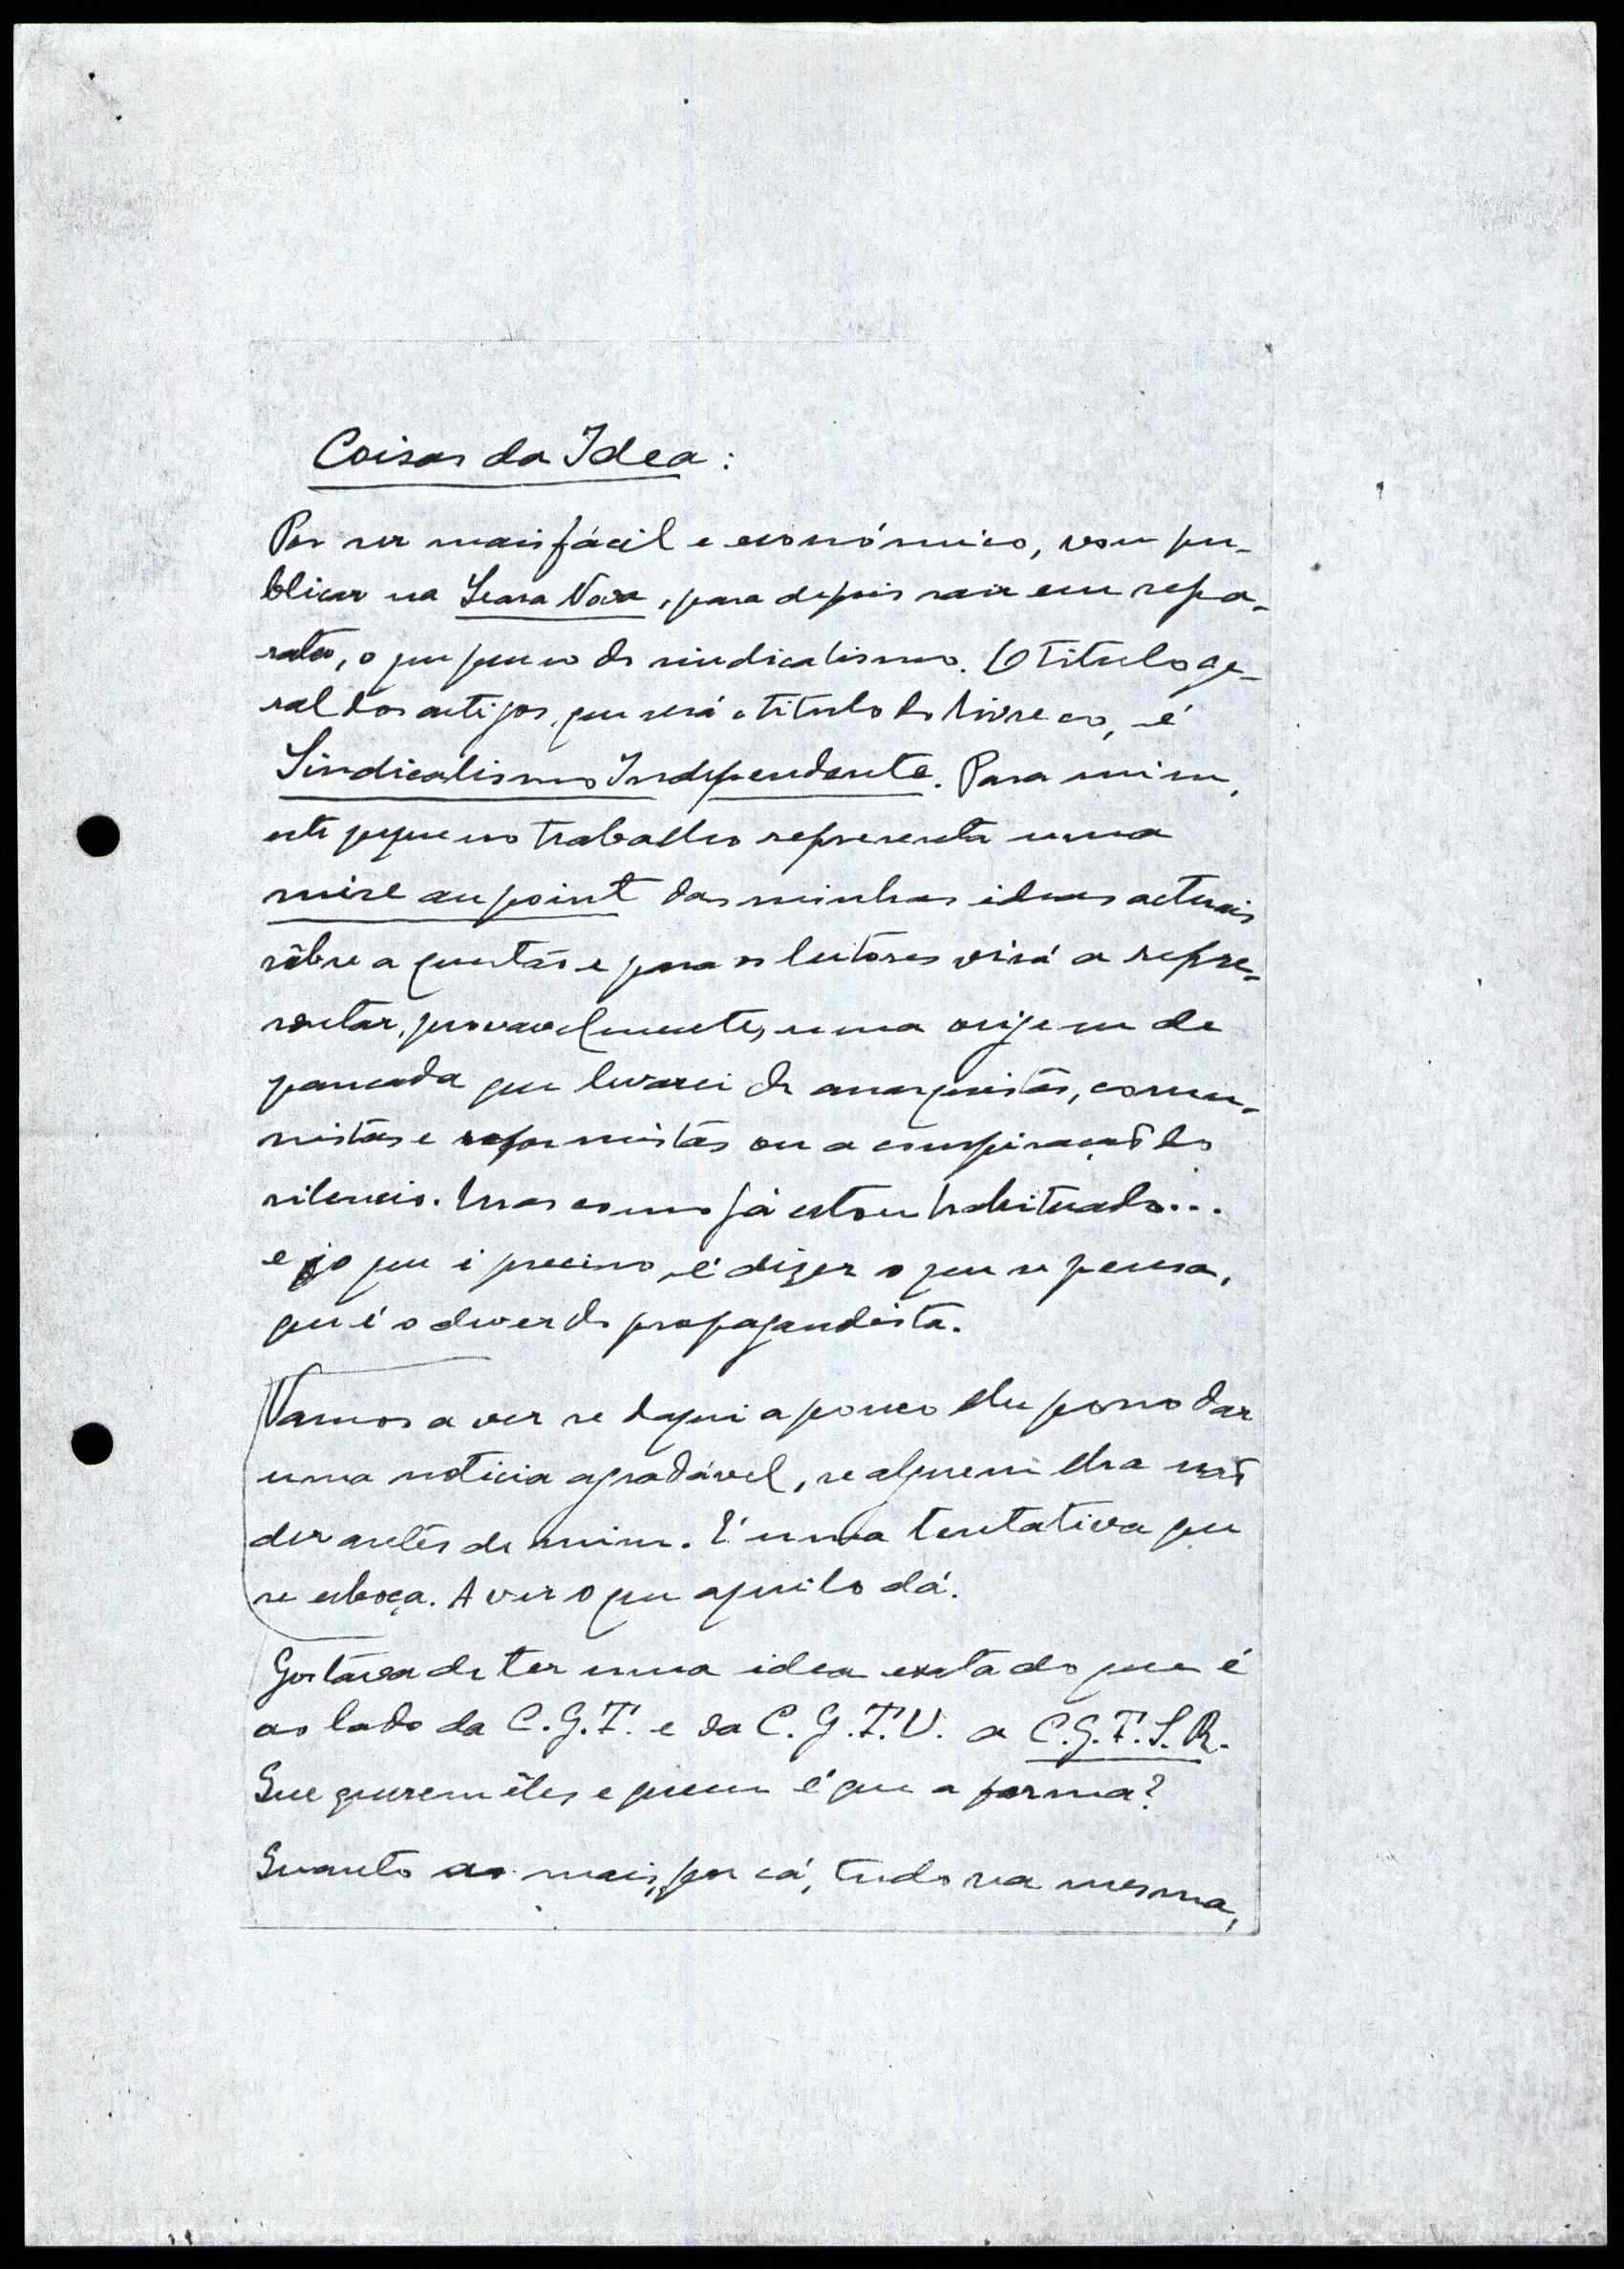 Coisas da Idea:
Por ser mais fácil e económico, vou pu-
blicar na Seara Nova, para depois sair em sepa-
rata, o que penso do sindicalismo. O titulo ge-
ral dos artigos, que será o titulo do livreco, é
Sindicalismo Independente. Para mim,
este pequeno trabalho representa uma
mise au point das minhas ideas actuais
sôbre a questão e para os leitores virá a repre-
sentar, provavelmente, uma origem de
pancada que levarei de anarquistas, comu-
nistas e reformistas ou a conspiração do
silencio. Mas como já estou habituado...
e o que é preciso é dizer o que se pensa,
que é o dever do propagandista.
Vamos a ver se daqui a pouco lhe posso dar
uma noticia agradável, se alguem lha não
der antes de mim. É uma tentativa que
se esboça. A ver o que aquilo dá.
Gostava de ter uma idea exata do que é
ao lado da C.G.T. e da C.G.T.U. a C.G.T.S.R.
Que querem êles e quem é que a forma?
Quanto ao mais, por cá, tudo na mesma,